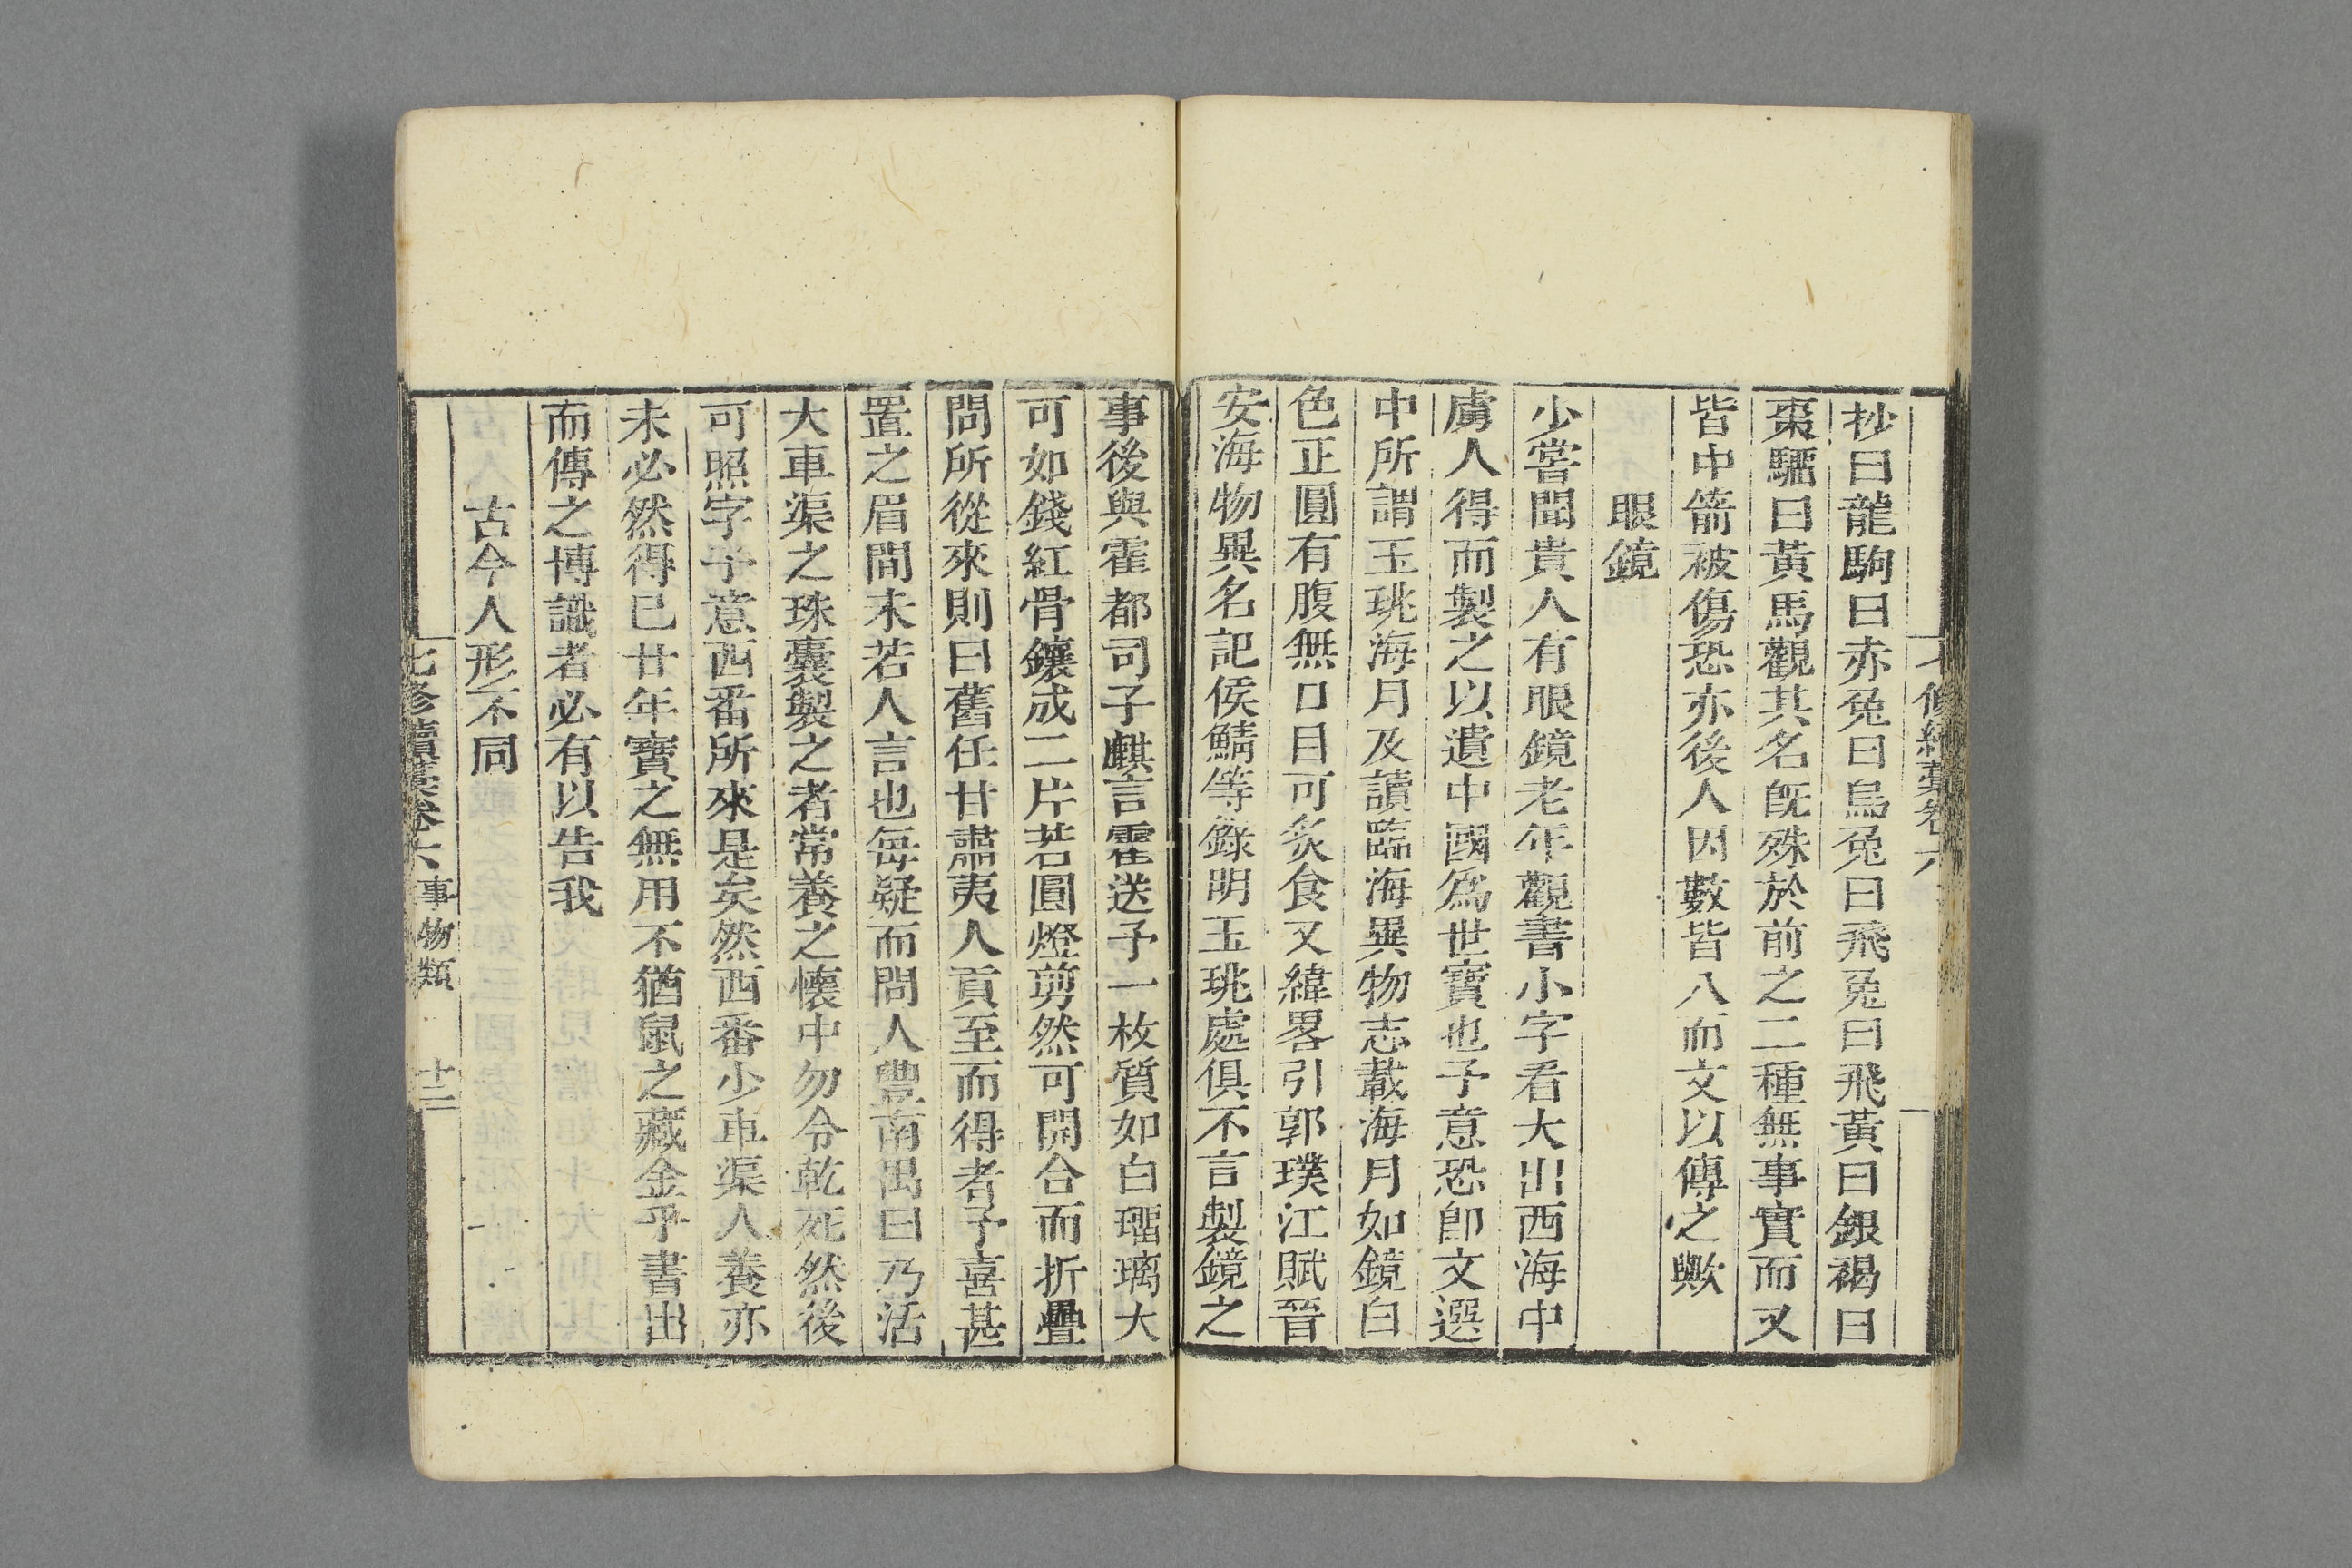 抄曰龍駒曰赤兔曰烏兔曰飛兔曰飛黃曰銀褐曰
棗騮曰黃馬觀其名旣殊於前之二種無事實而又
皆中箭被傷恐亦後人因數皆八而文以傳之歟
眼鏡
少嘗聞貴人有眼鏡老年觀書小字看大出西海中
虜人得而製之以遺中國爲世寶也予意恐卽文選
中所謂玉珧海月及讀臨海異物志載海月如鏡白
色正圓有腹無口目可炙食又緯畧引郭璞江賦晉
安海物異名記侯鯖等錄明玉珧處俱不言製鏡之
事後與霍都司子麒言霍送予一枚質如白瑠璃大
可如錢紅骨鑲成二片若圓燈剪然可開合而折疊
問所從來則曰舊任甘肅夷人貢至而得者予喜甚
置之眉間未若人言也每疑而問人豊南禺曰乃活
大車渠之珠囊製之者常養之懷中勿令乾死然後
可照字予意西番所來是矣然西番少車渠人養亦
未必然得已廿年寶之無用不猶鼠之藏金乎書出
而傳之博識者必有以告我
古今人形不同
七修續藁卷六 事物類 十二